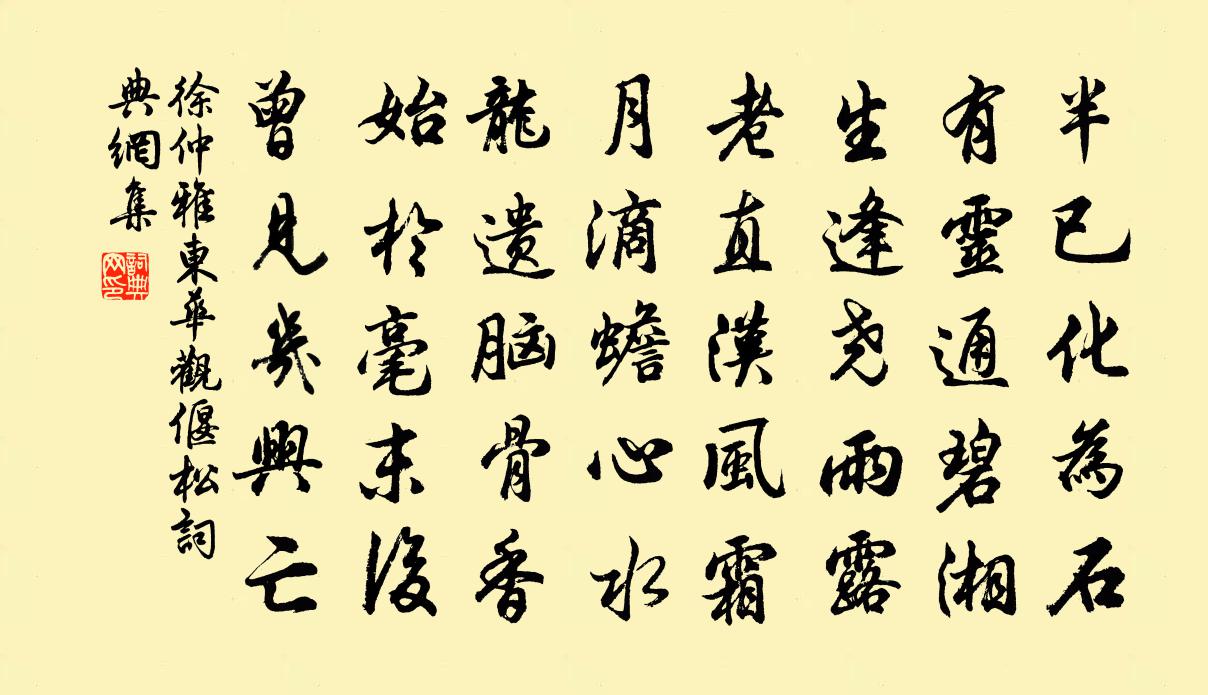 半已化為石
有靈通碧湘
生逢尧雨露
老直漢風霜
月滴蟾心水
龍遗脑骨香
始於毫末後
曾見幾興亡
徐仲雅東華觀偃松詞
典網集
詞典網印